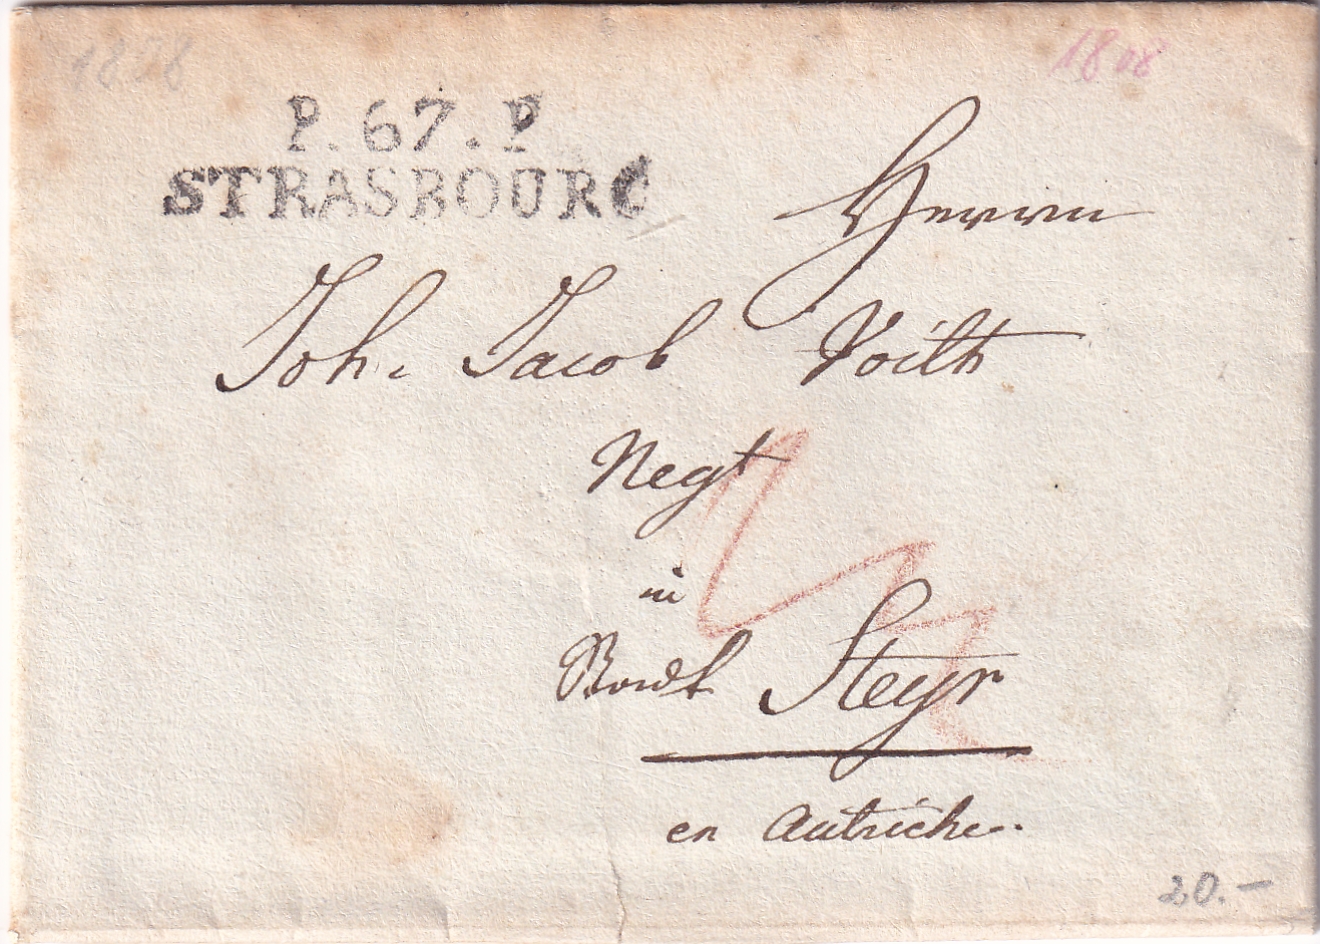 1808
P. 67. P
STRASBOURG
Herrn
Joh. Jacob Voith
Negt
in
Stadt Steyr
en Autriche.
20.-